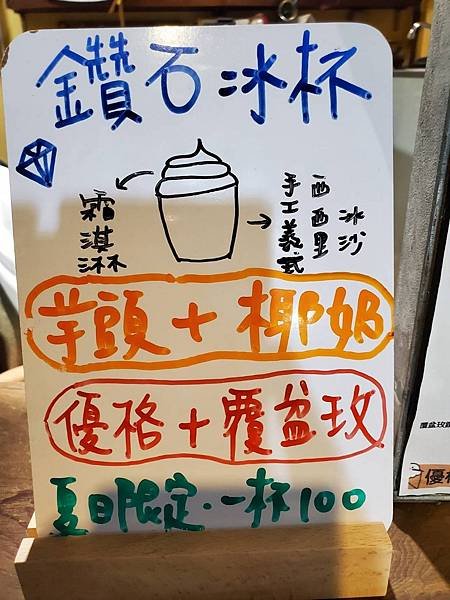 鑽石冰杯
霜淇淋
手工義式
西西里
冰沙
芋頭+椰奶
優格+覆盆玫
夏日限定·一杯100
覆盆玫
優格